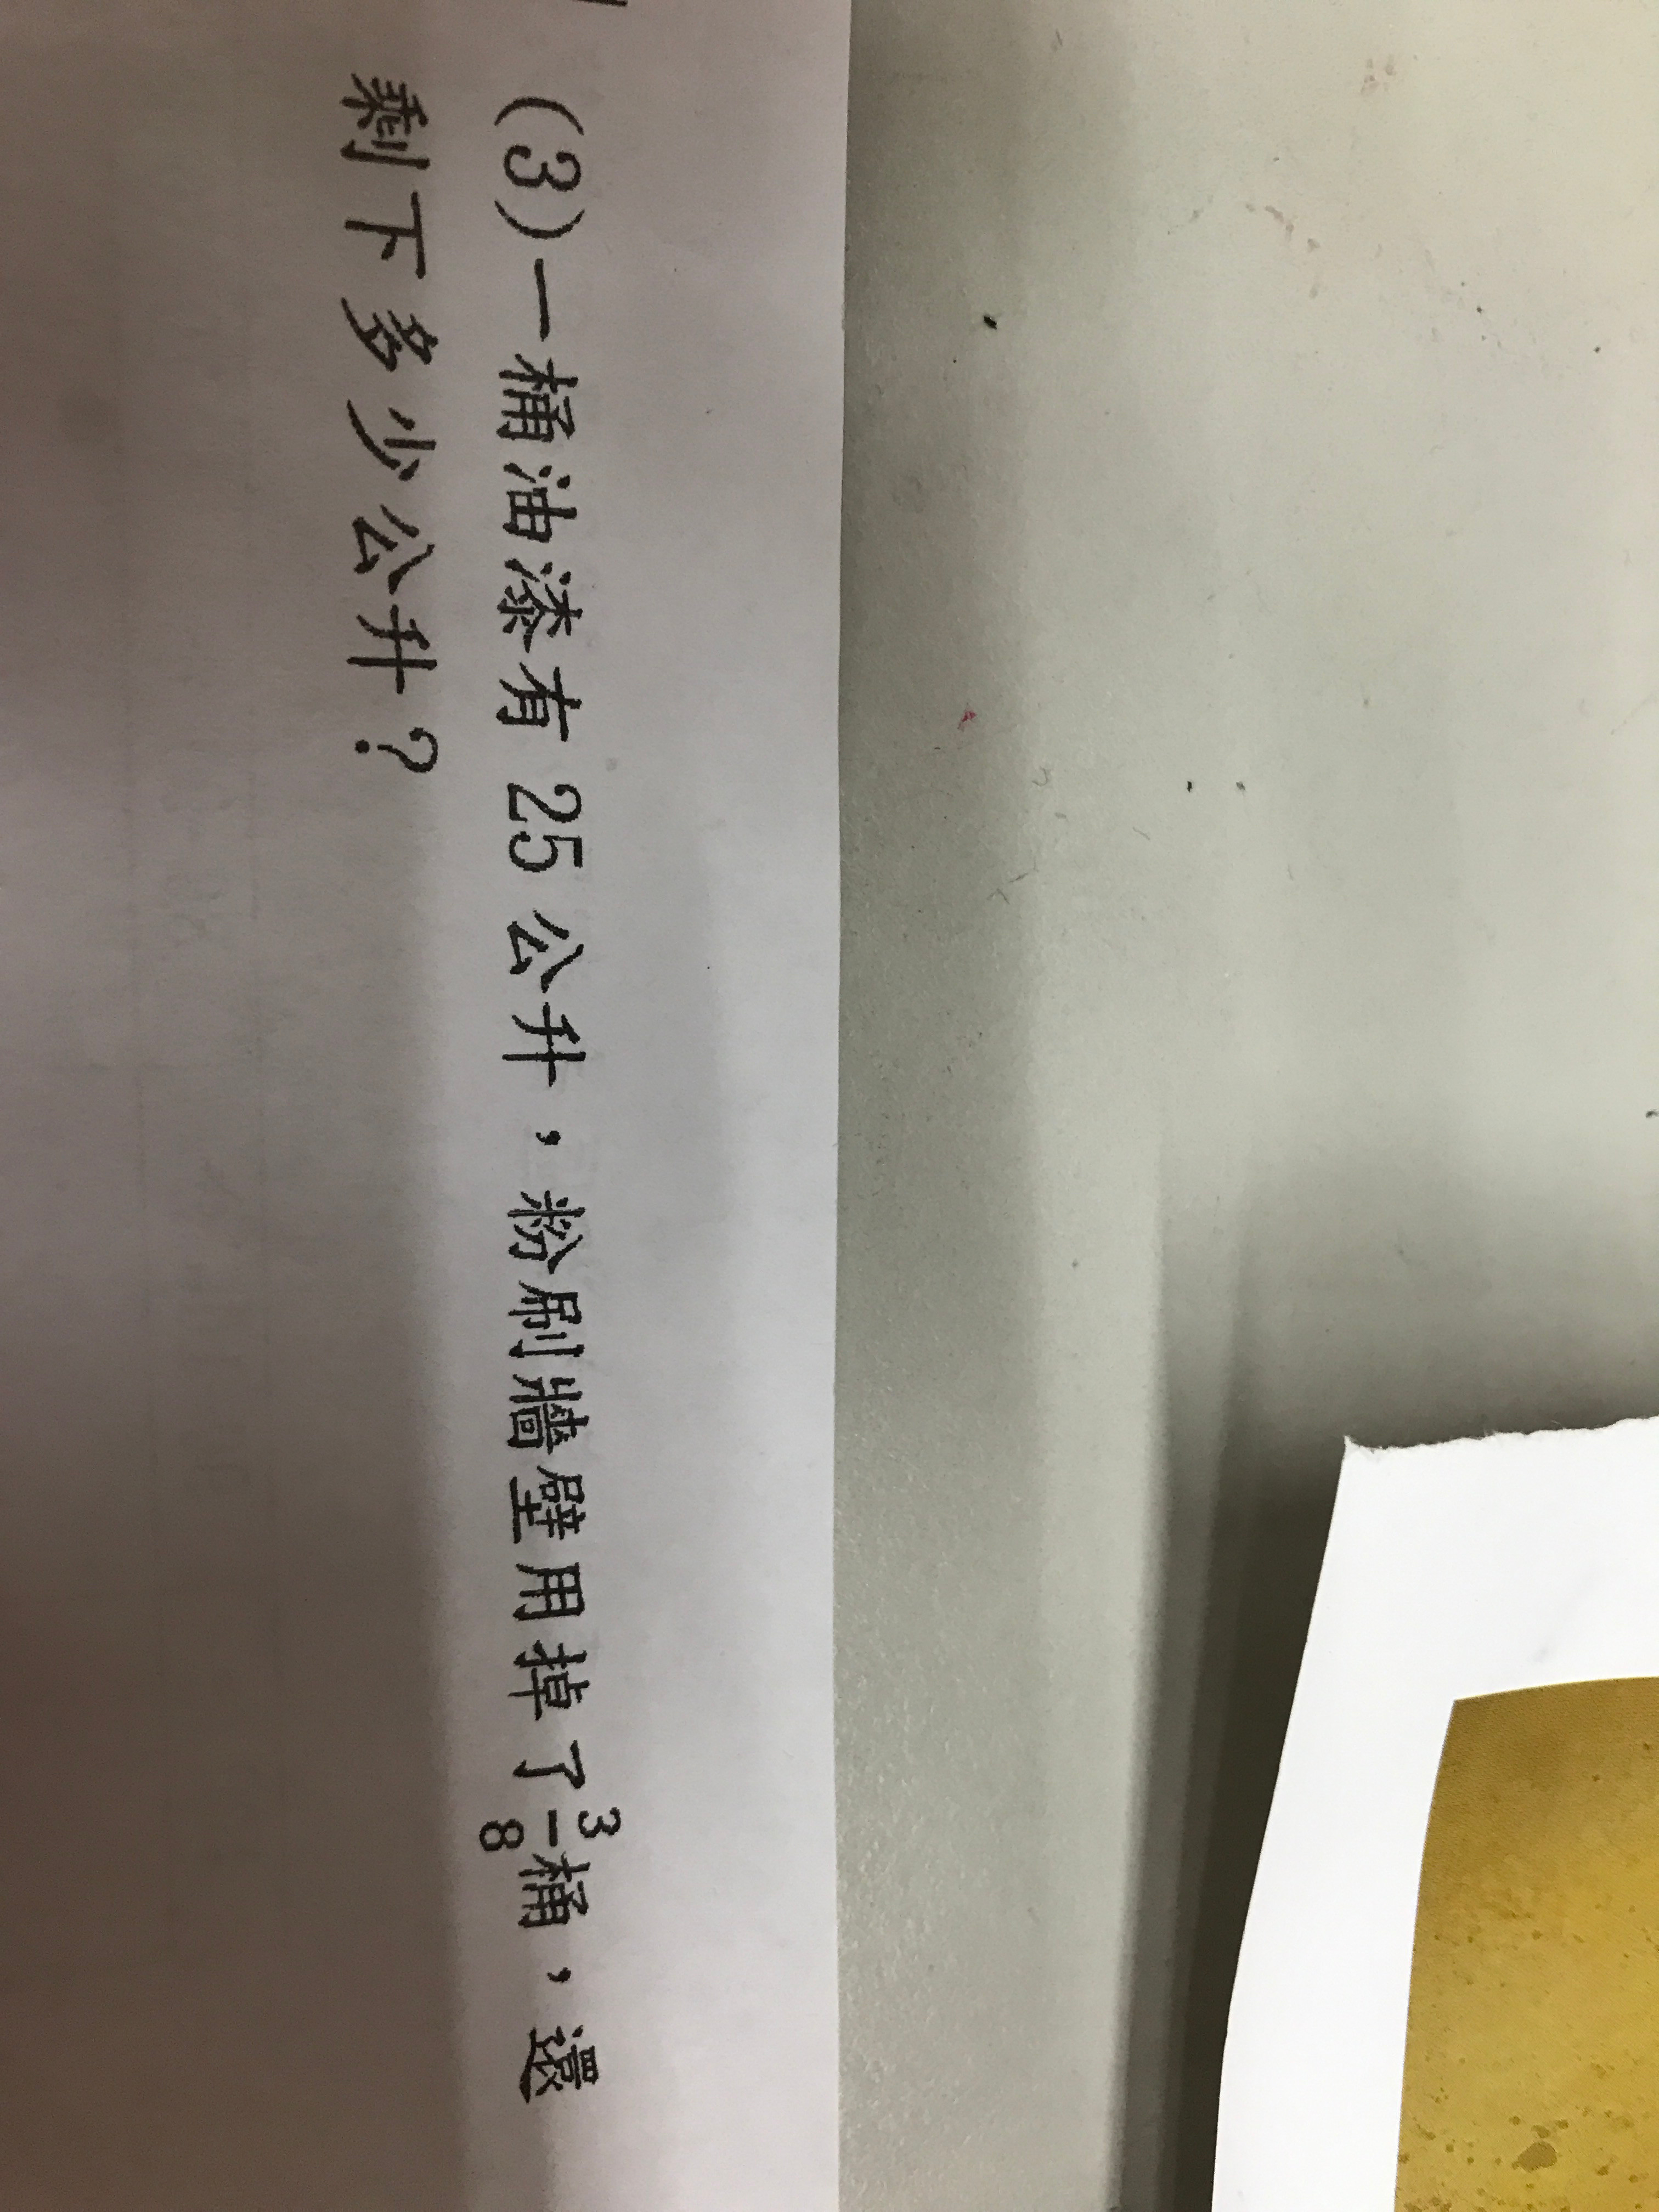 (3)一桶油漆有 25 公升，粉刷牆壁用掉了3/8桶，還
剩下多少公升？